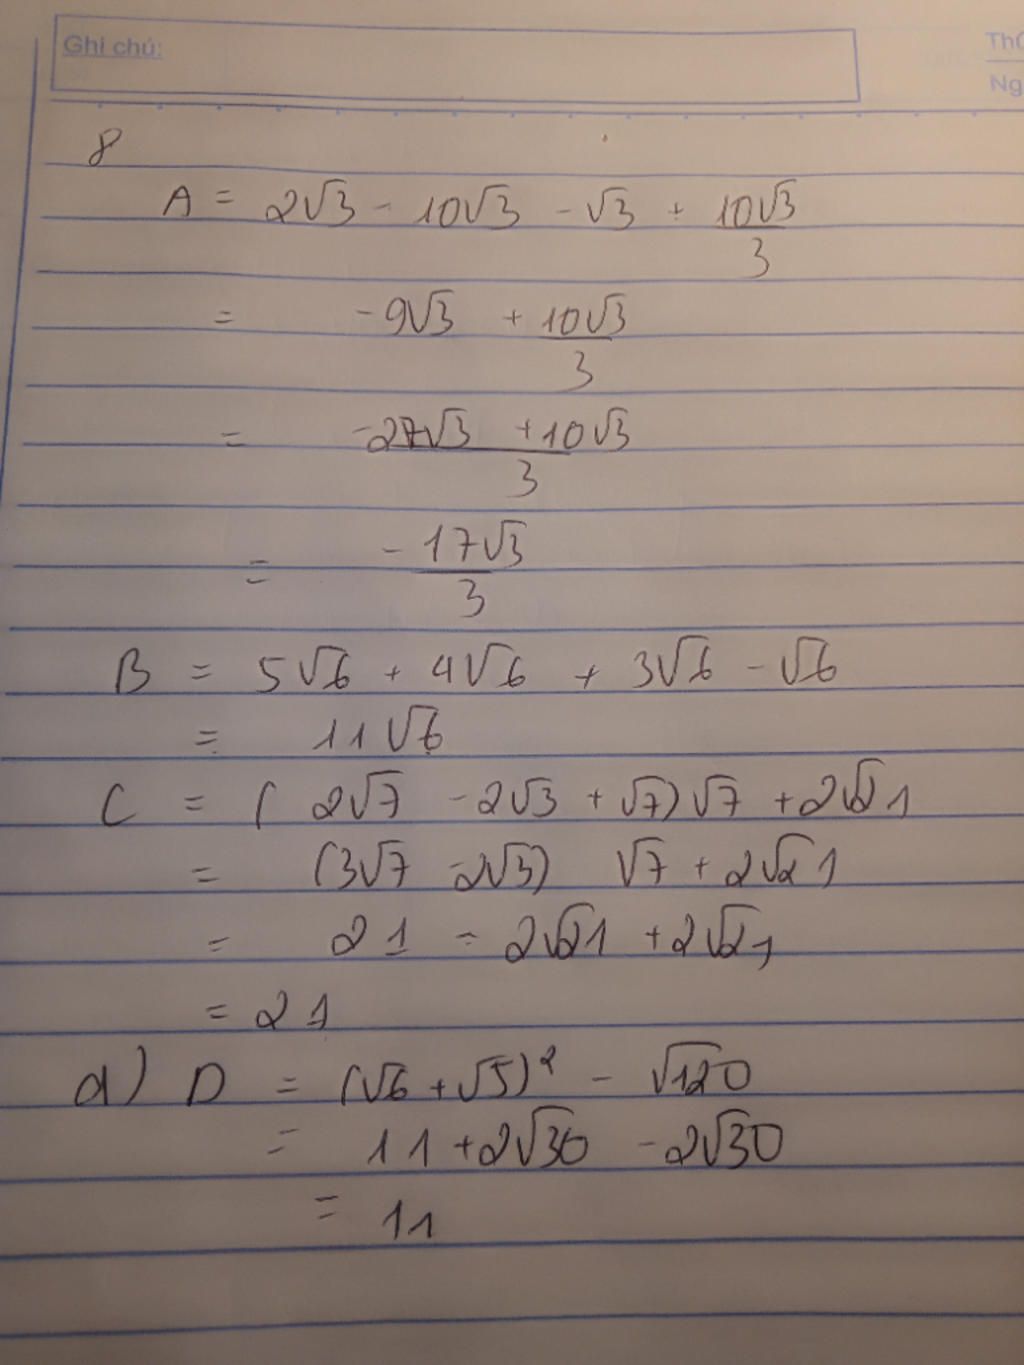 Ghi chú:
Th
Ng
8
A = 2√3 - 10√3 - √3 + 10√3/3
= -9√3 + 10√3/3
= (-27√3 + 10√3)/3
= -17√3/3
B = 5√6 + 4√6 + 3√6 - √6
= 11√6
C = (2√7 - 2√3 + √7)√7 + 2√21
= (3√7 - 2√3) √7 + 2√21
= 21 - 2√21 + 2√21
= 21
d) D = (√6 + √5)² - √120
= 11 + 2√30 - 2√30
= 11